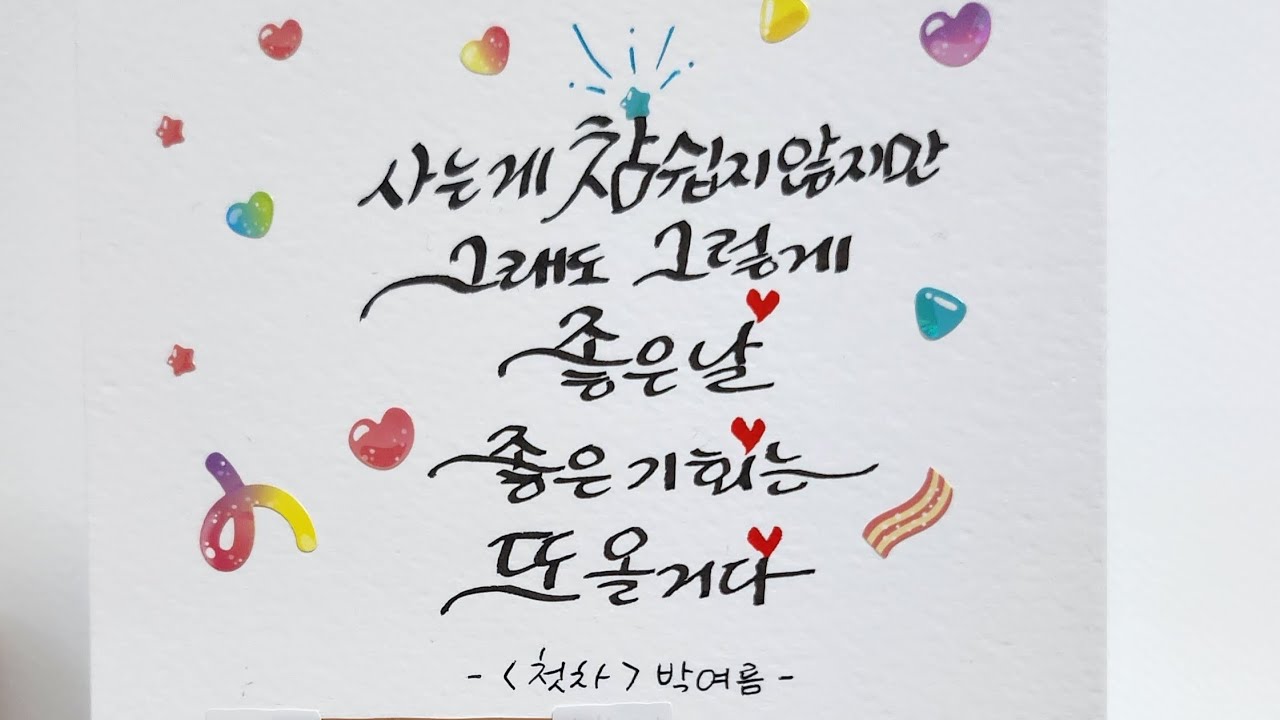 사는게 참 쉽지않지만
그래도 그렇게
좋은날
좋은기회는
또 올거다
-<첫차> 박여름-